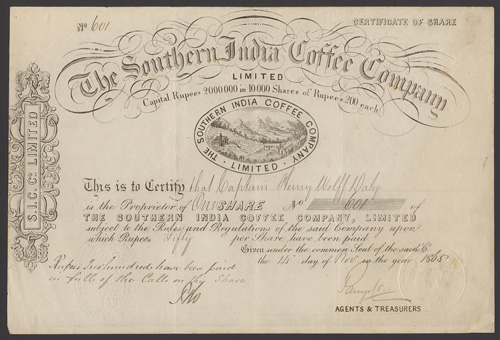 No 601
CERTIFICATE OF SHARE
The Southern India Coffee Company
LIMITED
Capital Rupees 2000000 in 10000 Shares of Rupees 200 each
THE SOUTHERN INDIA COFFEE COMPANY
LIMITED
S.I.C. Co. LIMITED
This is to Certify that Captain Henry Wolff Daly
is the Proprietor of One SHARE No 601 of
THE SOUTHERN INDIA COFFEE COMPANY, LIMITED
subject to the Rules and Regulations of the said Company upon
which Rupees Fifty per Share have been paid
Given under the common Seal of the said Co
the 14th day of Nov in the year 1865
Rupees Two hundred have been paid
in full of the Calls on this Share
AGENTS & TREASURERS